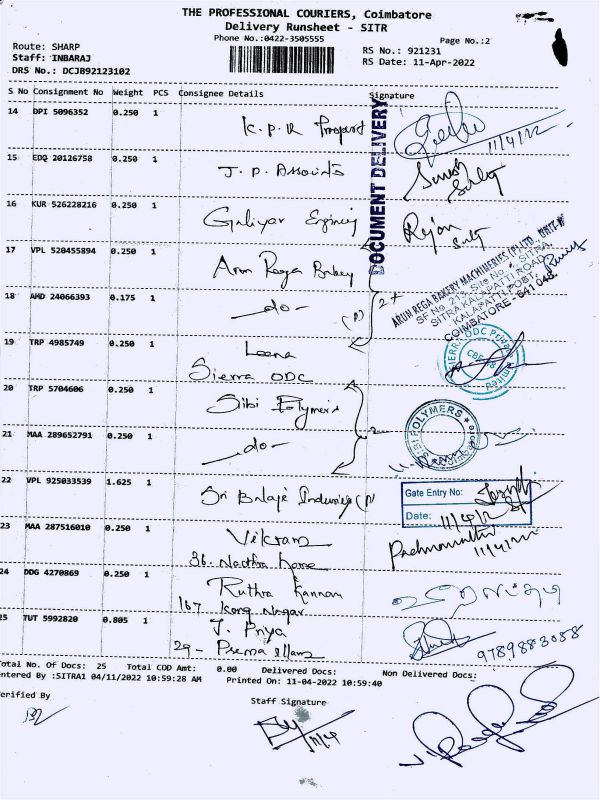 THE PROFESSIONAL COURIERS, Coimbatore
Delivery Runsheet - SITR
Phone No.:0422-3505555
Page No.:2
Route: SHARP
Staff: INBARAJ
RS No.: 921231
DRS No.: DCJ892123102
RS Date: 11-Apr-2022
S No Consignment No Weight PCS Consignee Details Signature
14 DPI 5096352 0.250 1 K.P.R
11/4/22
15 EDQ 20126758 0.250 1 J.P. Associats
16 KUR 526228216 0.250 1
Rajan
17 VPL 520455894 0.250 1 Arun Rega Bakey
18 AMD 24066393 0.175 1 -do-
19 TRP 4985749 0.250 1 Leena
Sierra ODC
20 TRP 5704606 0.250 1 Sibi Polymers
21 MAA 289652791 0.250 1 -do-
22 VPL 925033539 1.625 1 Sri Balaje
23 MAA 287516010 0.250 1 Vikram
36.
24 DDG 4270869 0.250 1 Ruthra Kannan
167 Kong Nagar
25 TUT 5992820 0.805 1 J. Priya
29- Prema illam
DOCUMENT DELIVERY
ARUN REGA BAKERY MACHINERIES (P) LTD UNIT-II
SF No 212, Site No , SITRA,
SITRA KALAPATTI ROAD,
KALAPATTI POST,
COIMBATORE - 641 048
SIERRA ODC Private Limited
CBE
SIBI POLYMERS
Gate Entry No:
Date:
11/4/22
9789883088
Total No. Of Docs: 25 Total COD Amt: 0.00 Delivered Docs: Non Delivered Docs:
Entered By :SITRA1 04/11/2022 10:59:28 AM Printed On: 11-04-2022 10:59:40
Verified By
Staff Signature